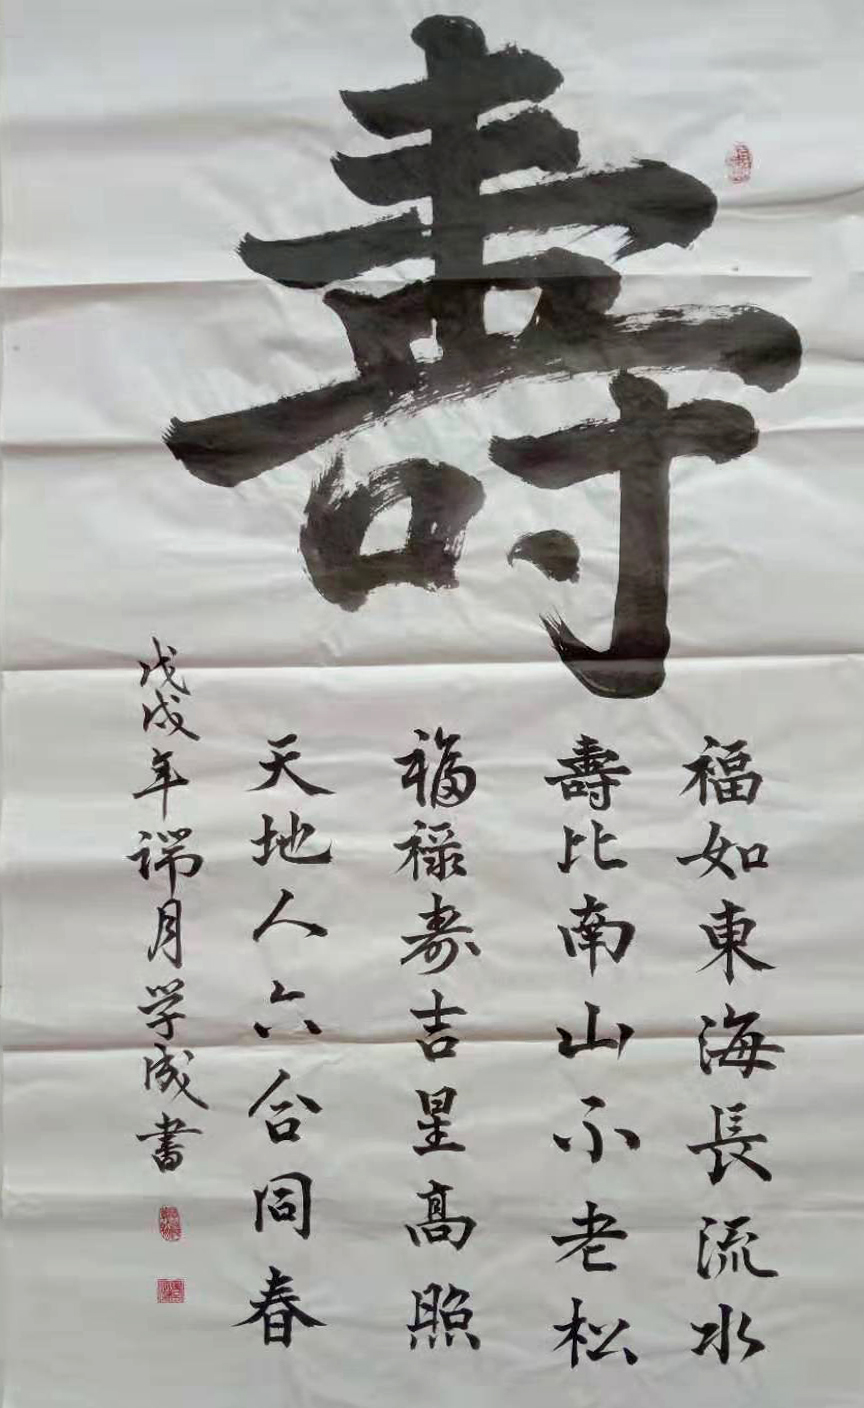 壽
福如東海長流水
壽比南山不老松
福禄寿吉星高照
天地人六合同春
戊戌年端月学成書